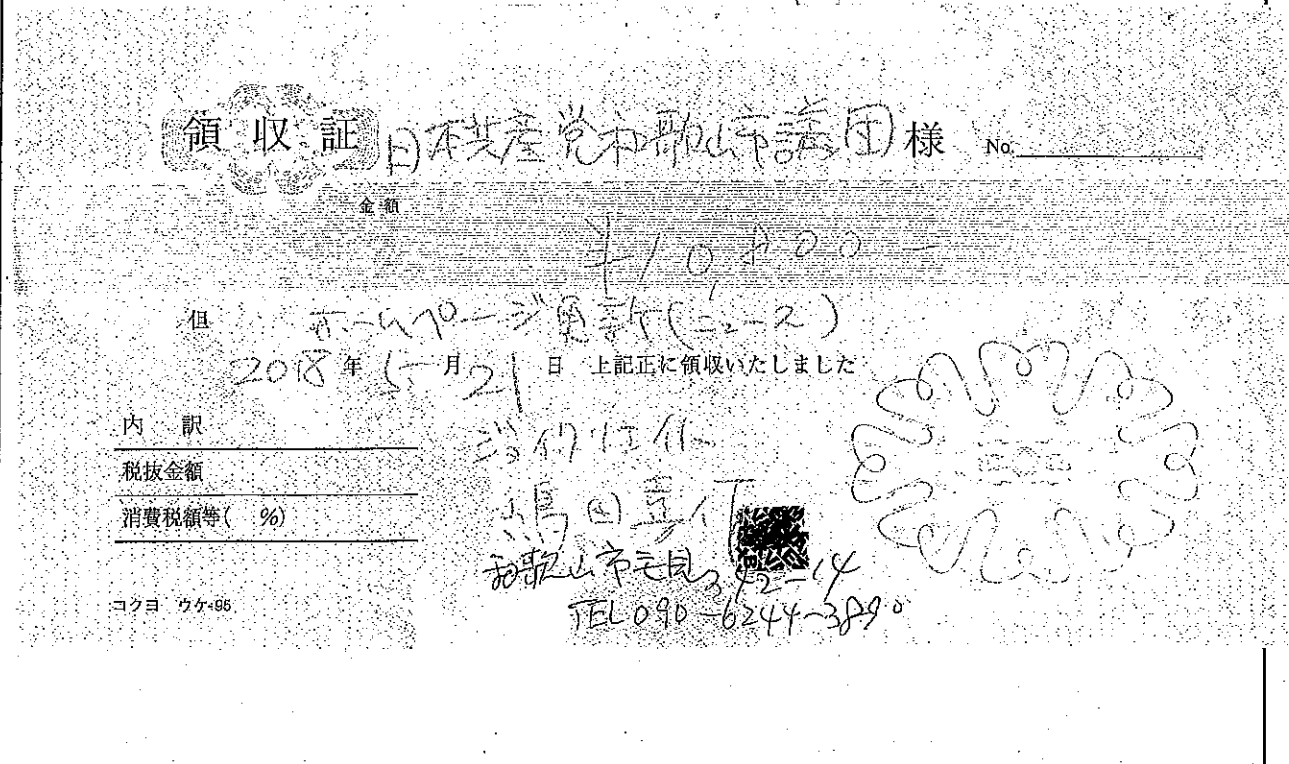 領収証 日本共産党和歌山市議団 様 No.
金額
¥10,800-
但 ホームページ更新(ニュース)
2018年5月21日 上記正に領収いたしました
内訳
税抜金額
消費税額等( %)
嶋田喜
和歌山市毛見342-14
TEL 090-6244-3890
コクヨ ウケ-95